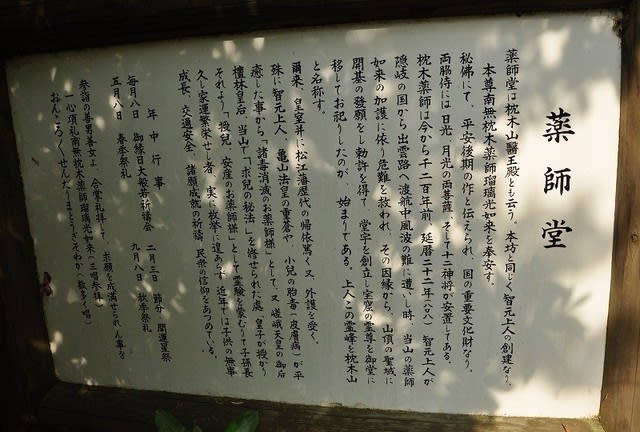 薬師堂
薬師堂は枕木山醫王殿とも云う。本坊と同じく智元上人の創建なり。
本尊南無枕木薬師瑠璃光如来を奉安す。
秘佛にて、平安後期の作と伝えられ、国の重要文化財なり。
両脇侍には日光、月光の両菩薩、そして十二神将が安置してある。
枕木薬師は今から千二百年前、延暦二十二年(八〇八)智元上人が
隠岐の国から出雲路へ渡航中風波の難に遭いし時、当山の薬師
如来の加護に依り危難を救われ、その因縁から、山頂の聖域に
開基の發願をし勅許を得て、堂宇を創立し宝窟の霊尊を御堂に
移してお祀りしたのが、始まりである。上人この霊峰を枕木山
と名称す。
爾来、皇室并に松江藩歴代の帰依篤く又、外護を受く。
殊に智元上人、亀山法皇の重蒼や、小児の胎毒(皮膚病)が平
癒した事から「諸毒消滅のお薬師様」として、又、嵯峨天皇の御后
檀林皇后、当山で「求児の秘法」を修せられた處、皇子が授かり
それより「授児、安産のお薬師様」として霊験を蒙むりて子孫長
久し家運繁栄せし者、実に枚挙に遑あらず、近年では子供の無事
成長、交通安全、諸願成就の祈祷、民衆の信仰をあつめている。
年中行事
毎月八日 御縁日大般若祈祷会 二月三日 節分 開運星祭
五月八日 春季祭礼 九月八日 秋季祭礼
参詣の善男善女よ、合掌礼拝して、求願を成満せられん事を
一心頂礼南無枕木薬師瑠璃光如来(三唱参拝)
おんころころせんだりまとうぎそわか(数多く唱)